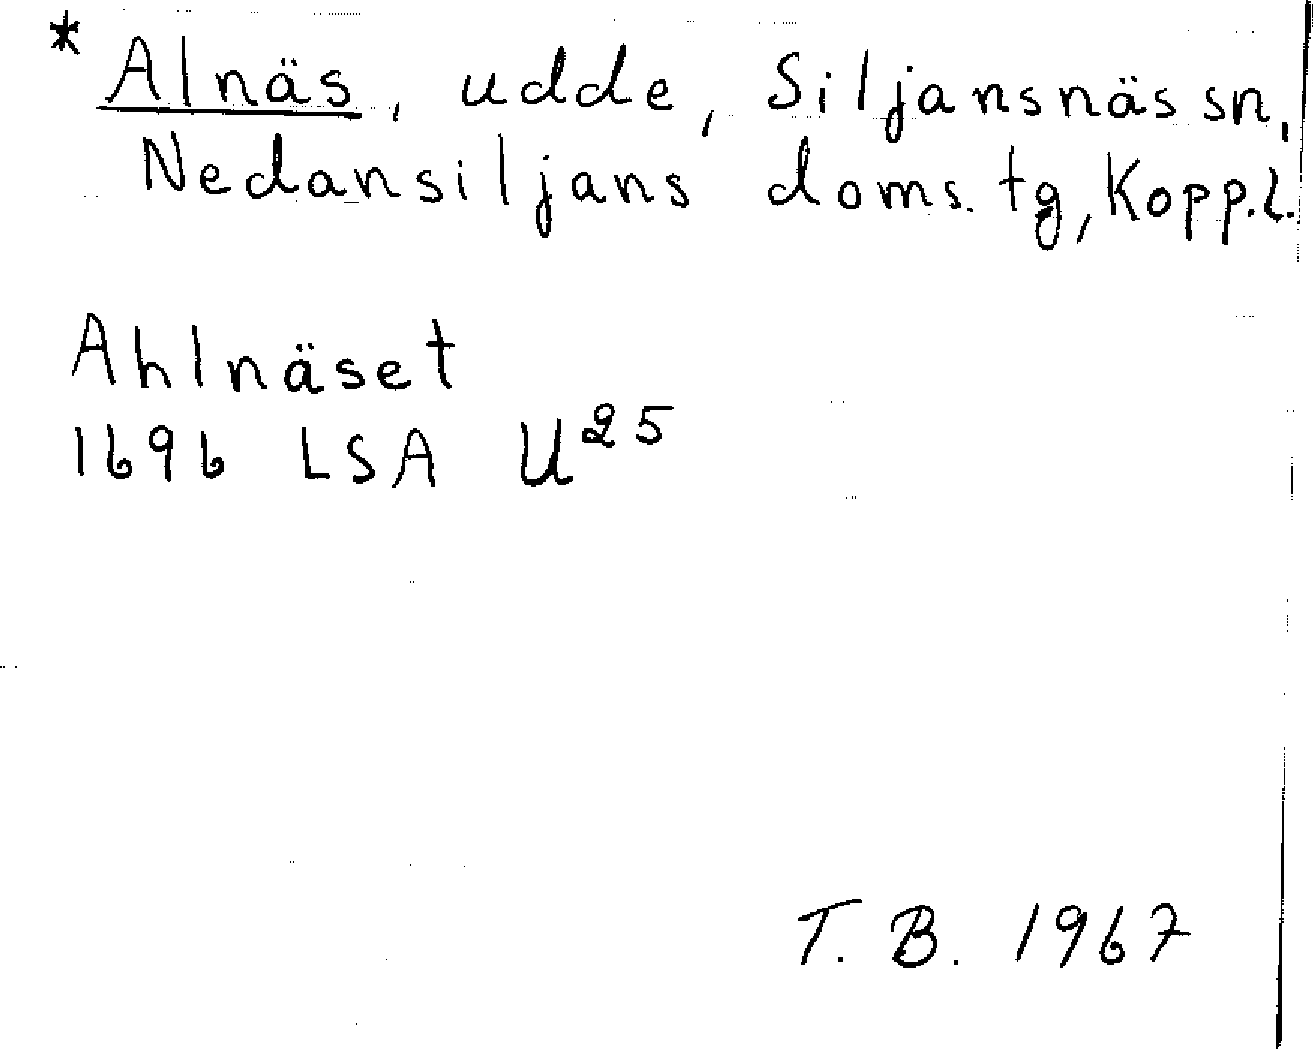 * Alnäs, udde, Siljansnäs sn,
Nedansiljans doms. tg, Kopp.l.
Ahlnäset
1696 LSA U²⁵
T. B. 1967